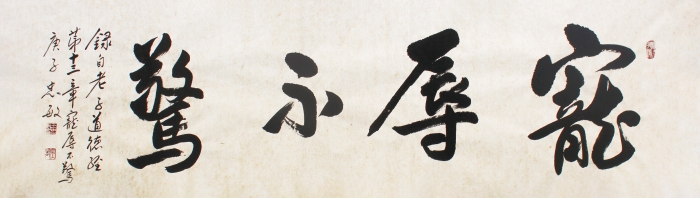 寵辱不驚
録自老子道德經
第十三章寵辱不驚
庚子忠敏